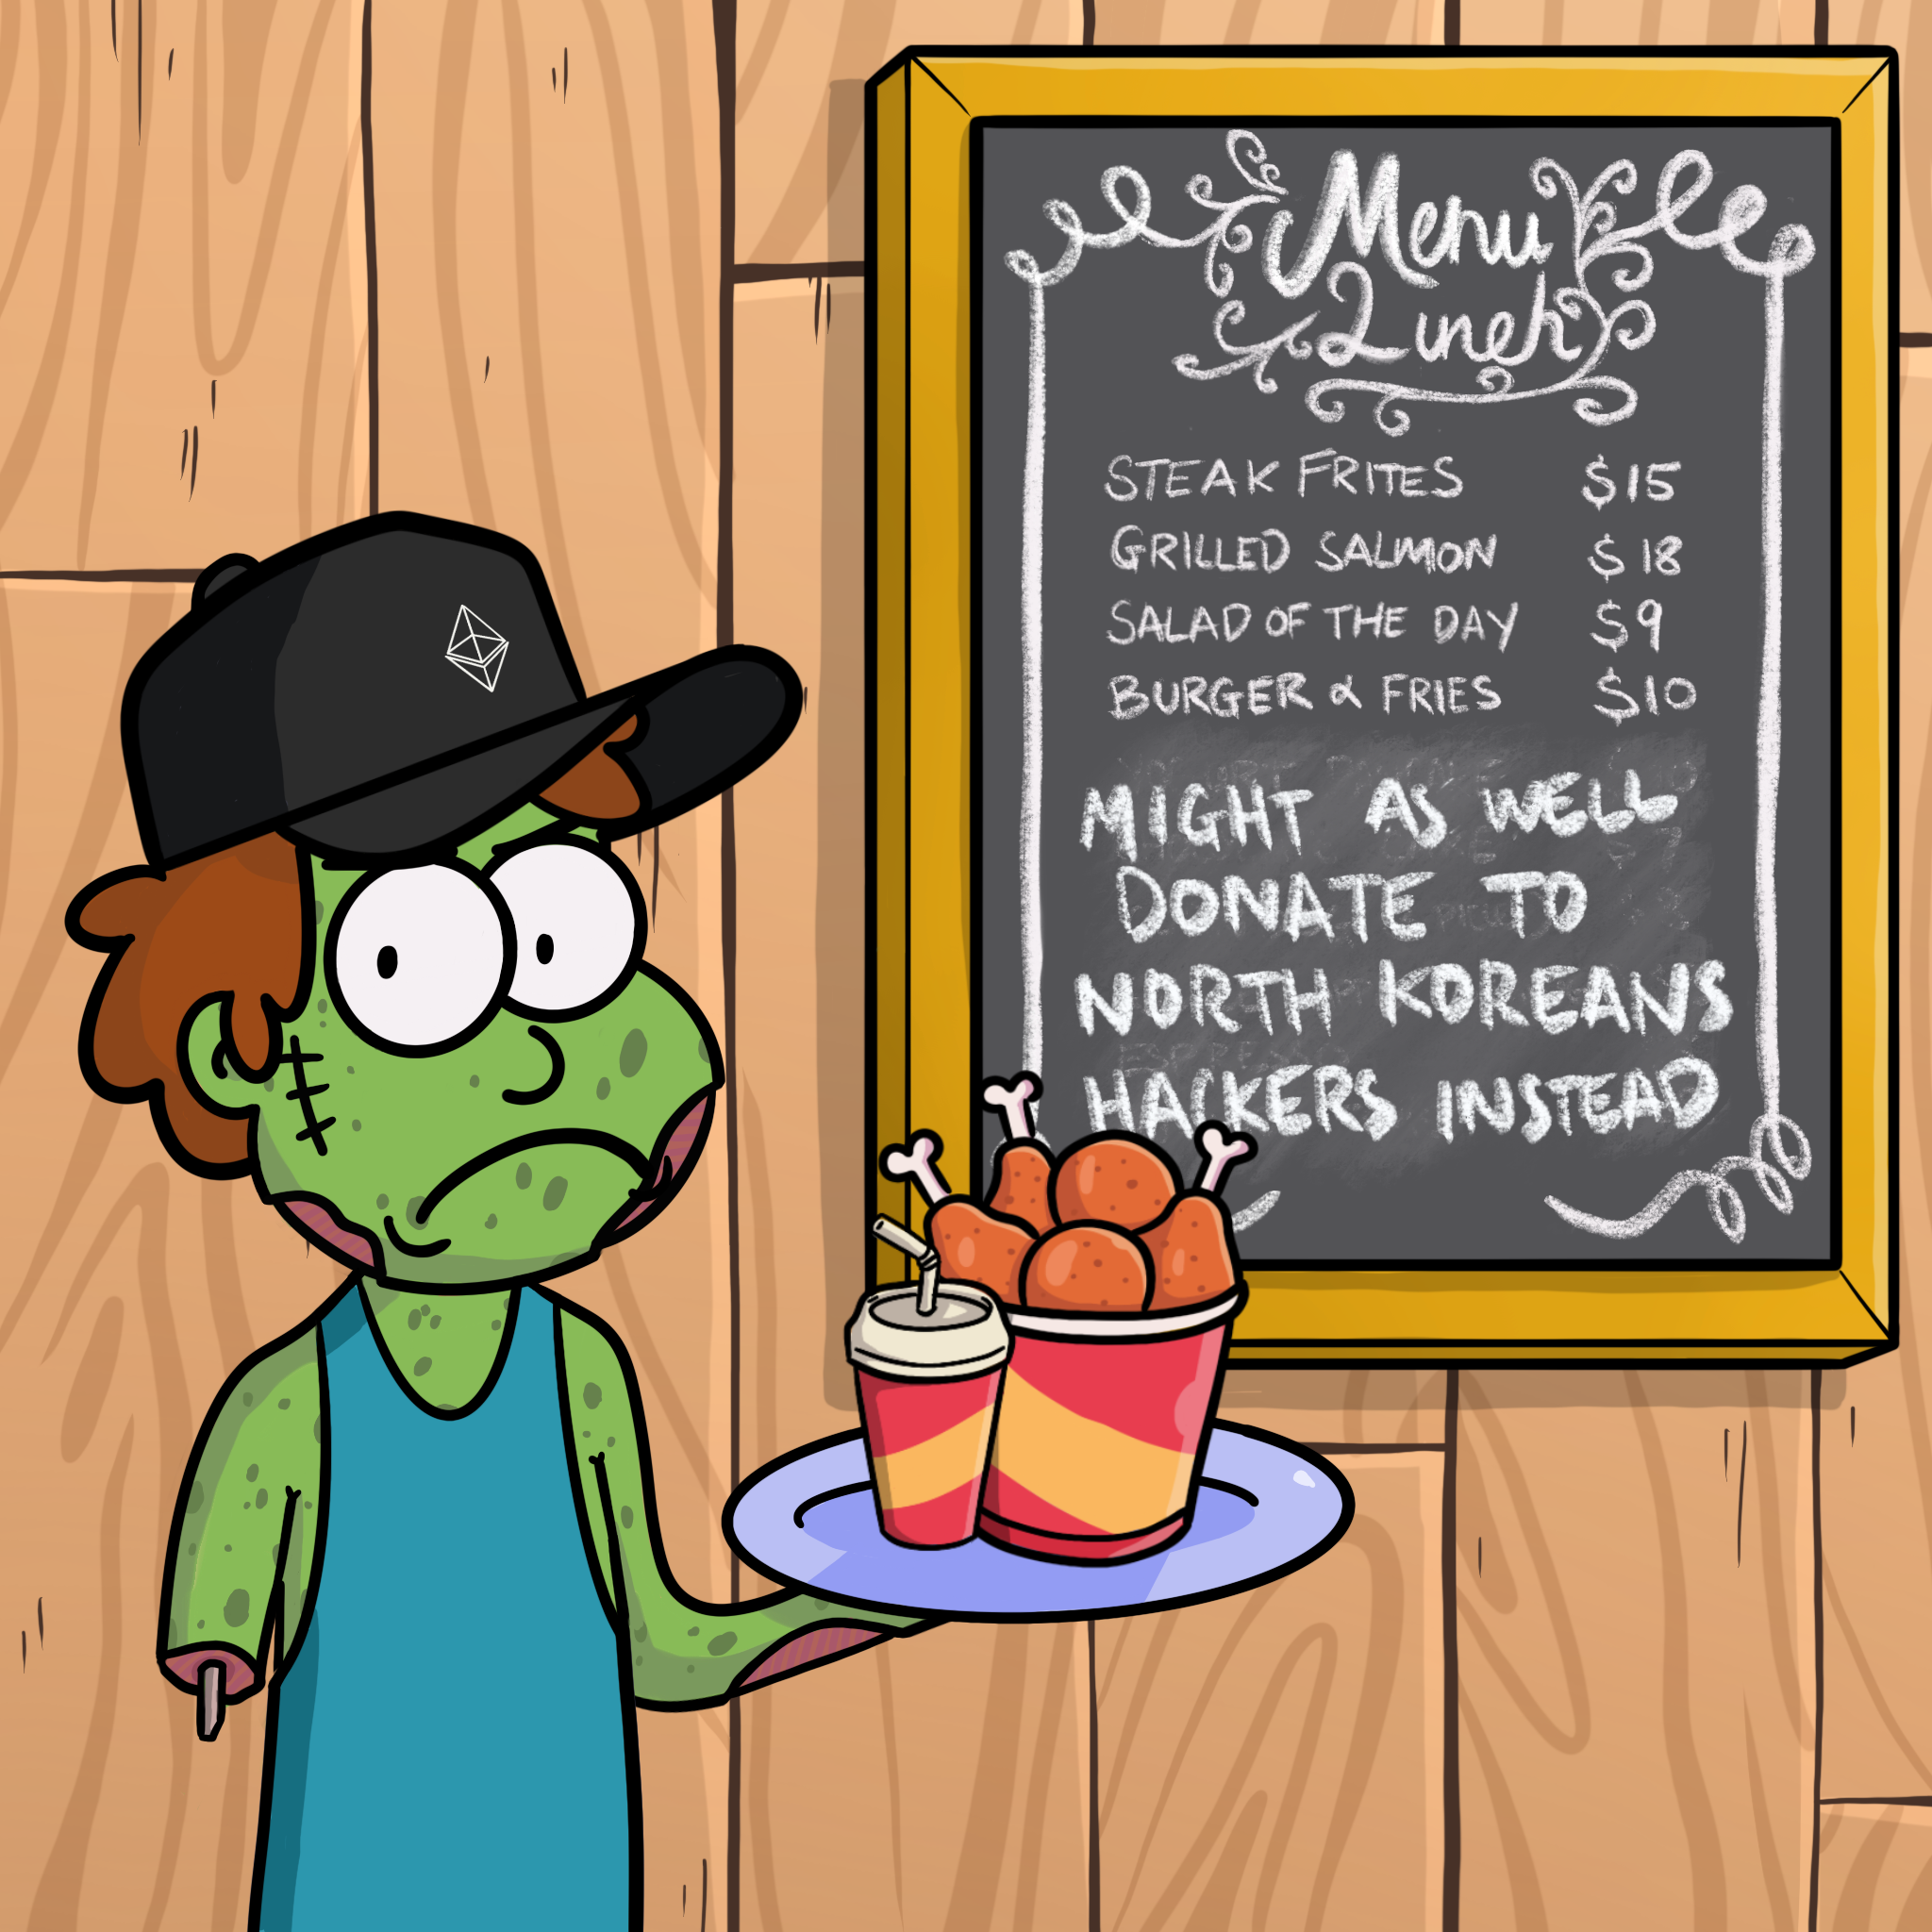 Menu
Lunch
STEAK FRITES $15
GRILLED SALMON $18
SALAD OF THE DAY $9
BURGER & FRIES $10
MIGHT AS WELL
DONATE TO
NORTH KOREANS
HACKERS INSTEAD